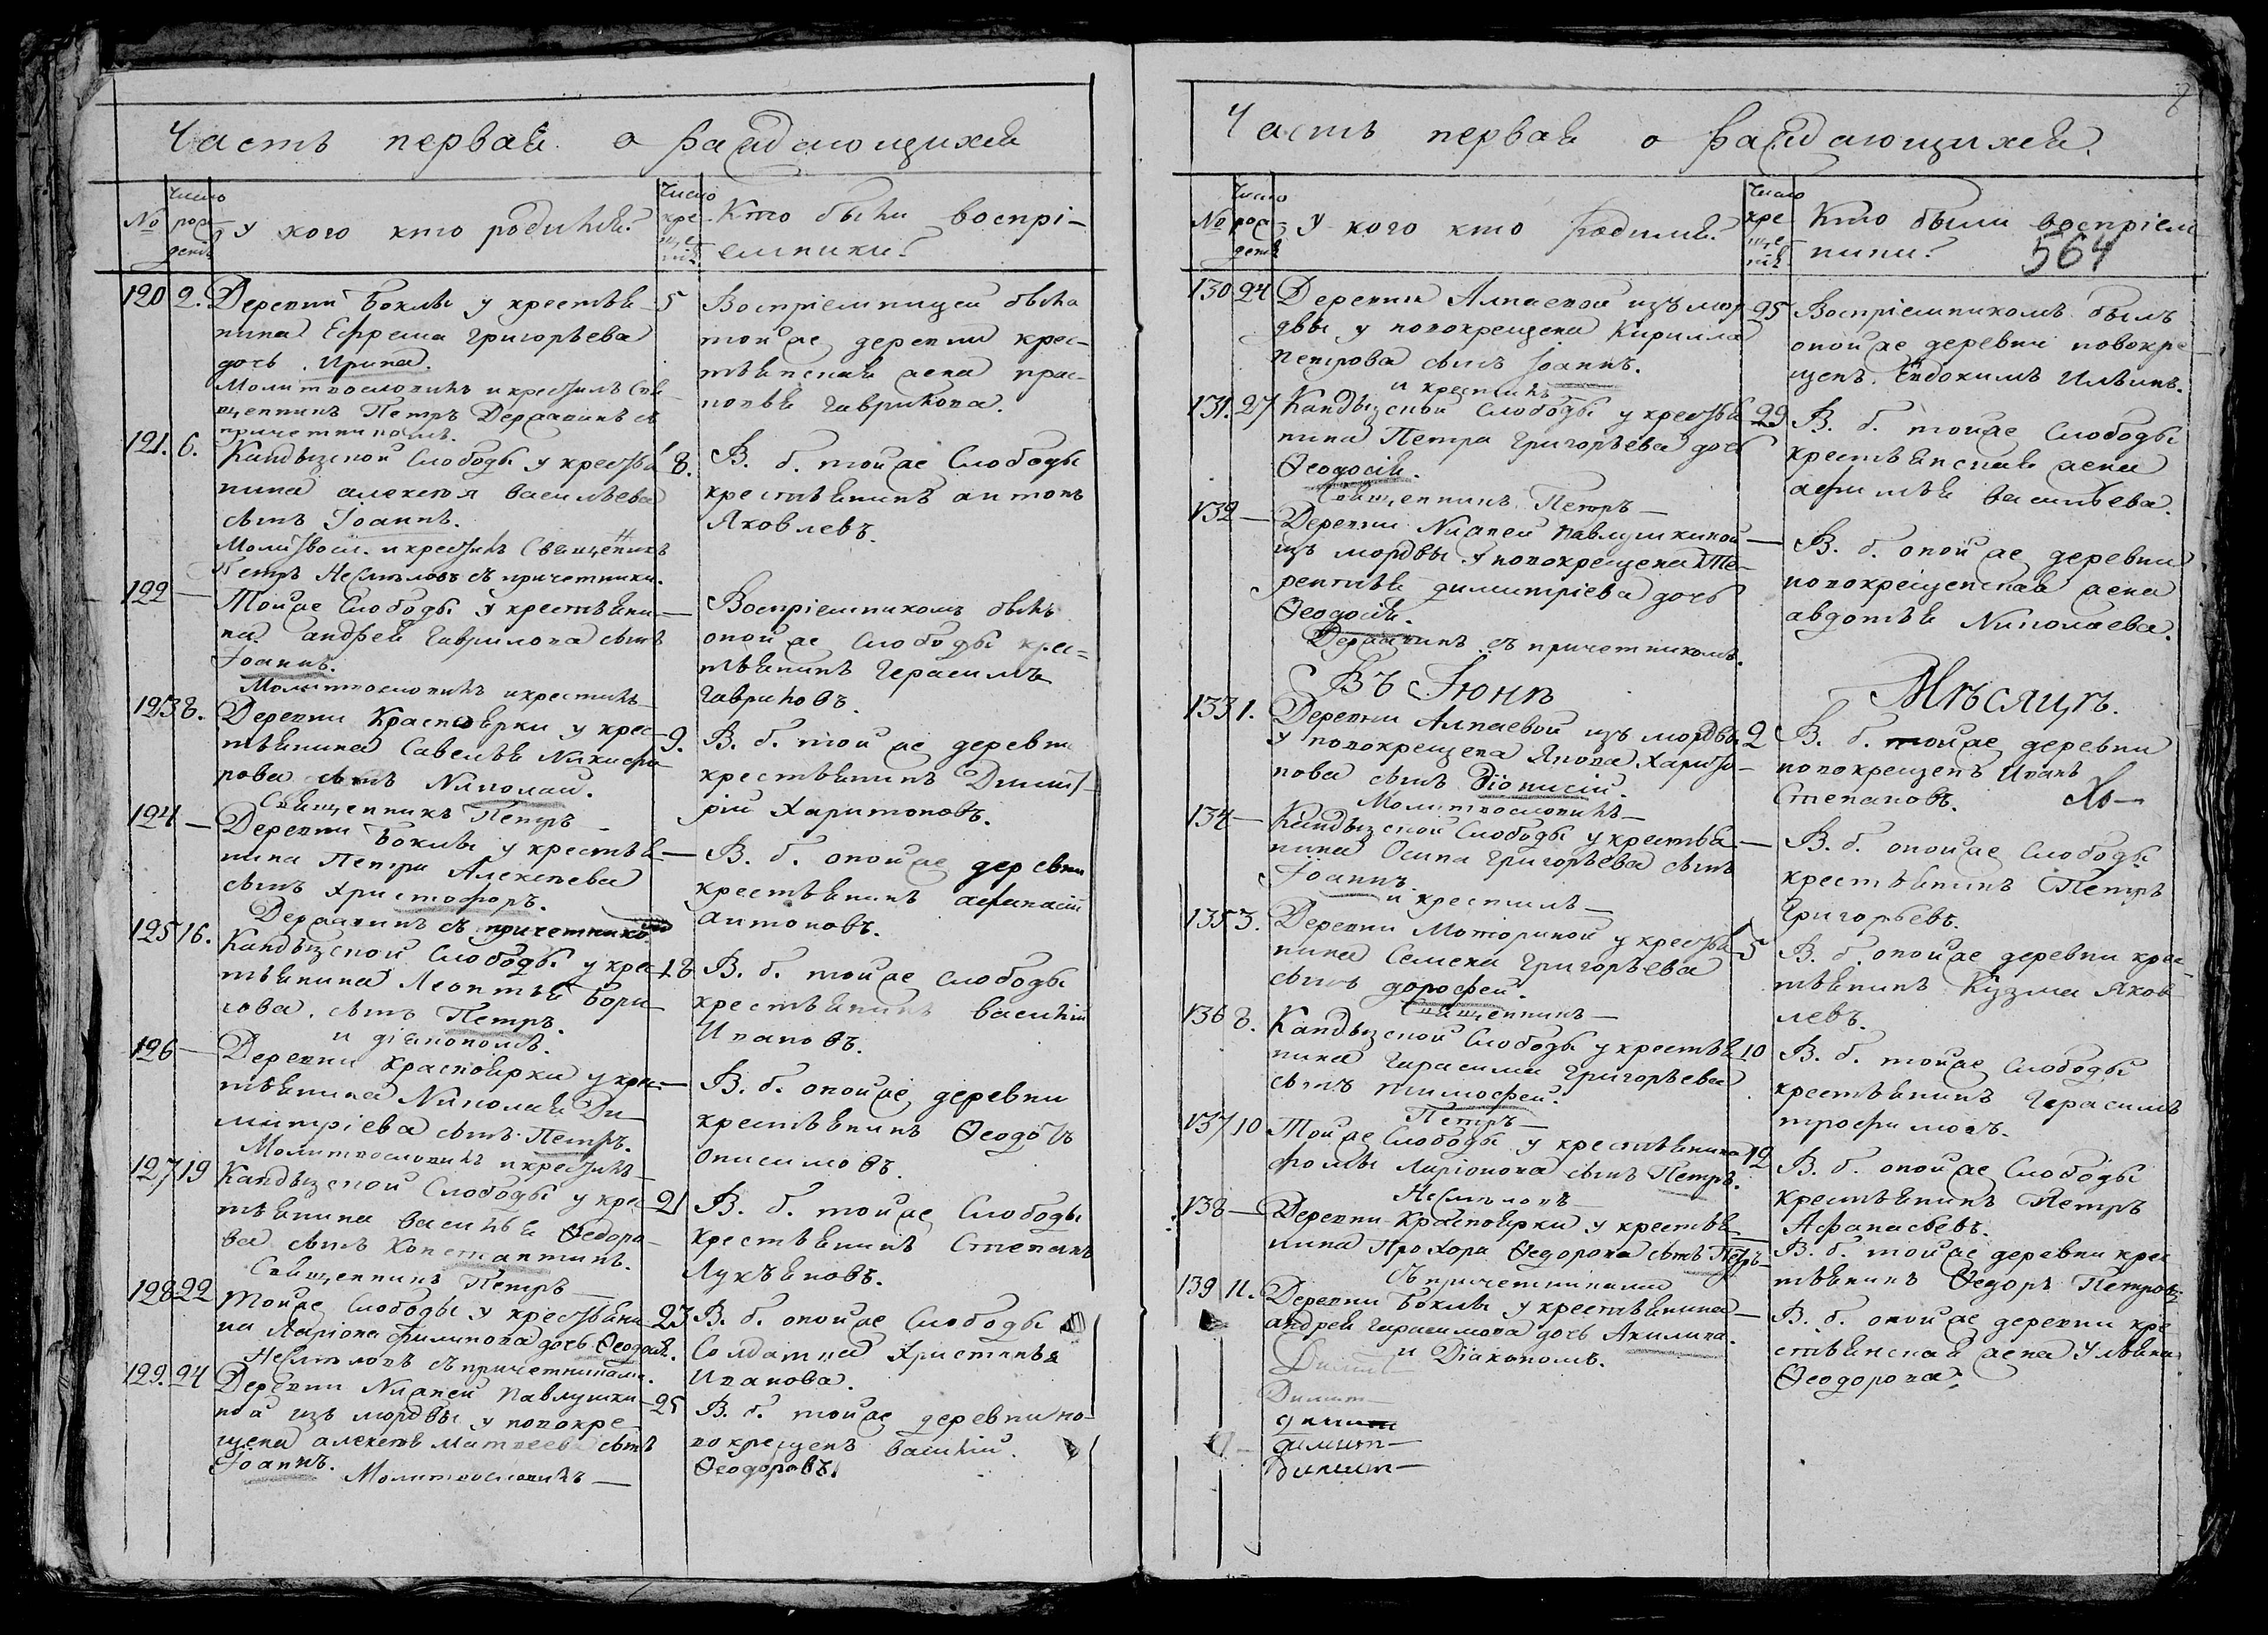 Часть первая о раждающихся
№
Число рождения
У кого кто родился?
Число крещения
Кто были воспріемники?
120 2. Деревни Боклы у крестья-
нина Ефрема Григорьева
дочь Ирина.
Молитвословилъ и крестилъ Свя-
щенникъ Петръ Державинъ съ
причетникомъ.
5 Воспріемницей была
той же деревни крес-
тьянская жена Прас-
ковья Гаврилова.
121. 6. Кандызской Слободы у крестья
нина Алексѣя Васильева
сынъ Іоаннъ.
Молитвосл. и крестилъ Священникъ
Петръ Несмѣловъ съ причетники.
8. В. б. той же Слободы
крестьянинъ Антонъ
Яковлевъ.
122 — Той же Слободы у крестьяни-
на Андрея Гаврилова сынъ
Іоаннъ.
Молитвословилъ и крестилъ —
— Воспріемникомъ былъ
оной же Слободы крес=
тьянинъ Герасимъ
Гавриловъ.
123 8. Деревни Красноярки у крес-
тьянина Савелья Никифо
рова сынъ Николай.
Священникъ Петръ —
9. В. б. той же деревни
крестьянинъ Димит-
рій Харитоновъ.
124 — Деревни Боклы у крестья-
нина Петра Алексѣева
сынъ Христофоръ.
Державинъ съ причетникомъ
— В. б. оной же деревни
крестьянинъ Афанасій
Антоновъ.
125 16. Кандызской Слободы у крес-
тьянина Леонтья Бори-
сова, сынъ Петръ.
и діакономъ.
18 В. б. той же слободы
крестьянинъ Василій
Ивановъ.
126 — Деревни Красноярки у крес-
тьянина Николая Ди-
митріева сынъ Петръ.
Молитвословилъ и крестилъ —
— В. б. оной же деревни
крестьянинъ Ѳеодотъ
Онисимовъ.
127 19 Кандызской Слободы у крес-
тьянина Василья Ѳедоро-
ва сынъ Константинъ.
Священникъ Петръ —
21 В. б. той же Слободы
крестьянинъ Степанъ
Лукъяновъ.
128 22 Той же Слободы у крестьяни
на Ларіона Филипова дочь Ѳеодосія.
Несмѣловъ съ причетниками.
23 В. б. оной же Слободы
Солдатка Христинья
Иванова.
129. 24 Деревни Нижней Павлушки-
ной изъ мордвы у новокре-
щена Алексѣя Матвеева сынъ
Іоаннъ.
Молитвословилъ —
25 В. б. той же деревни но-
вокрещенъ Василій
Ѳеодоровъ.
Часть первая о раждающихся.
№
Число рождения
У кого кто родился?
Число крещения
Кто были воспріем
ники?
564
130 24 Деревни Алпаевой изъ мор
двы у новокрещена Кирилла
Петрова сынъ Іоаннъ.
и крестилъ
25 Воспріемникомъ былъ
оной же деревни новокре
щенъ Евдокимъ Ильинъ.
131. 27 Кандызской Слободы у крестья
нина Петра Григорьева дочь
Ѳеодосія.
Священникъ Петръ —
29 В. б. той же Слободы
крестьянская жена
Афимья Васильева.
132 — Деревни Нижней Павлушкиной
изъ мордвы у новокрещена Те-
рентья Димитріева дочь
Ѳеодосія.
Державинъ съ причетникомъ.
— В. б. оной же деревни
новокрещенская жена
Авдотья Николаева.
Въ Іюнѣ Мѣсяцѣ.
133 1. Деревни Алпаевой изъ мордвы
у новокрещена Якова Харито-
нова сынъ Діонисій.
Молитвословилъ —
2 В. б. той же деревни
новокрещенъ Иванъ
Степановъ.
134 — Кандызской Слободы у крестья-
нина Осипа Григорьева сынъ
Іоаннъ.
и крестилъ —
— В. б. оной же Слободы
крестьянинъ Петръ
Григорьевъ.
135 3. Деревни Моториной у крестья
нина Семена Григорьева
сынъ Дорофей.
Священникъ —
5 В. б. оной же деревни крес-
тьянинъ Кузма Яков
левъ.
136 8. Кандызской Слободы у крестья
нина Гарасима Григорьева
сынъ Тимофей.
Петръ —
10 В. б. той же Слободы
крестьянинъ Герасимъ
Трофимовъ.
137 10 Той же Слободы у крестьянина
Фомы Ларіонова сынъ Петръ.
Несмѣловъ
12 В. б. оной же Слободы
крестьянинъ Петръ
Афанасьевъ.
138 — Деревни Красноярки у крестья
нина Прохора Ѳедорова сынъ Петръ
съ причетниками
В. б. той же деревни крес
тьянинъ Ѳедоръ Петровъ
139 11. Деревни Боклы у крестьянина
Андрея Гарасимова дочь Акилина.
и Діакономъ.
— В. б. оной же деревни кре
стьянская жена Ульяна
Ѳеодорова.
Димит
Димит —
димит
димит —
Димит —